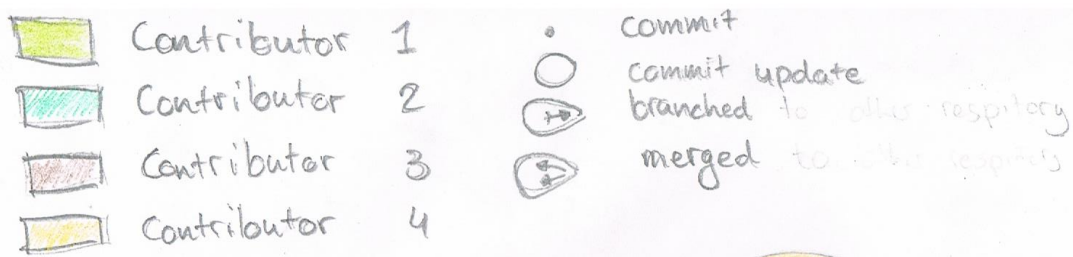 Contributor 1
Contributor 2
Contributor 3
Contributor 4
commit
commit update
branched to other respitory
merged to